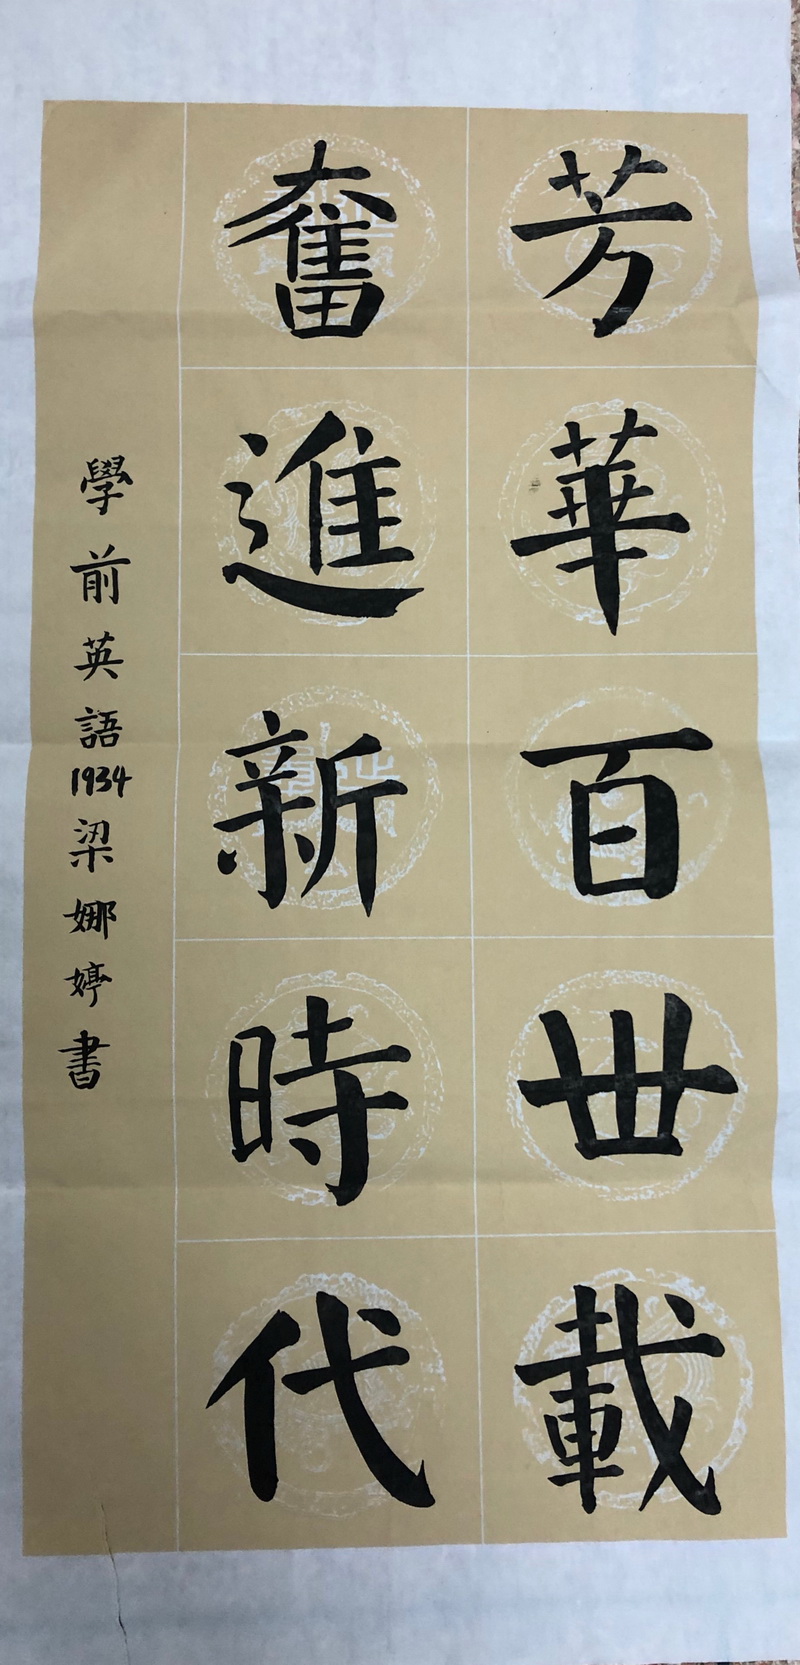 芳華百世載
奮進新時代
學前英語1934梁娜婷書